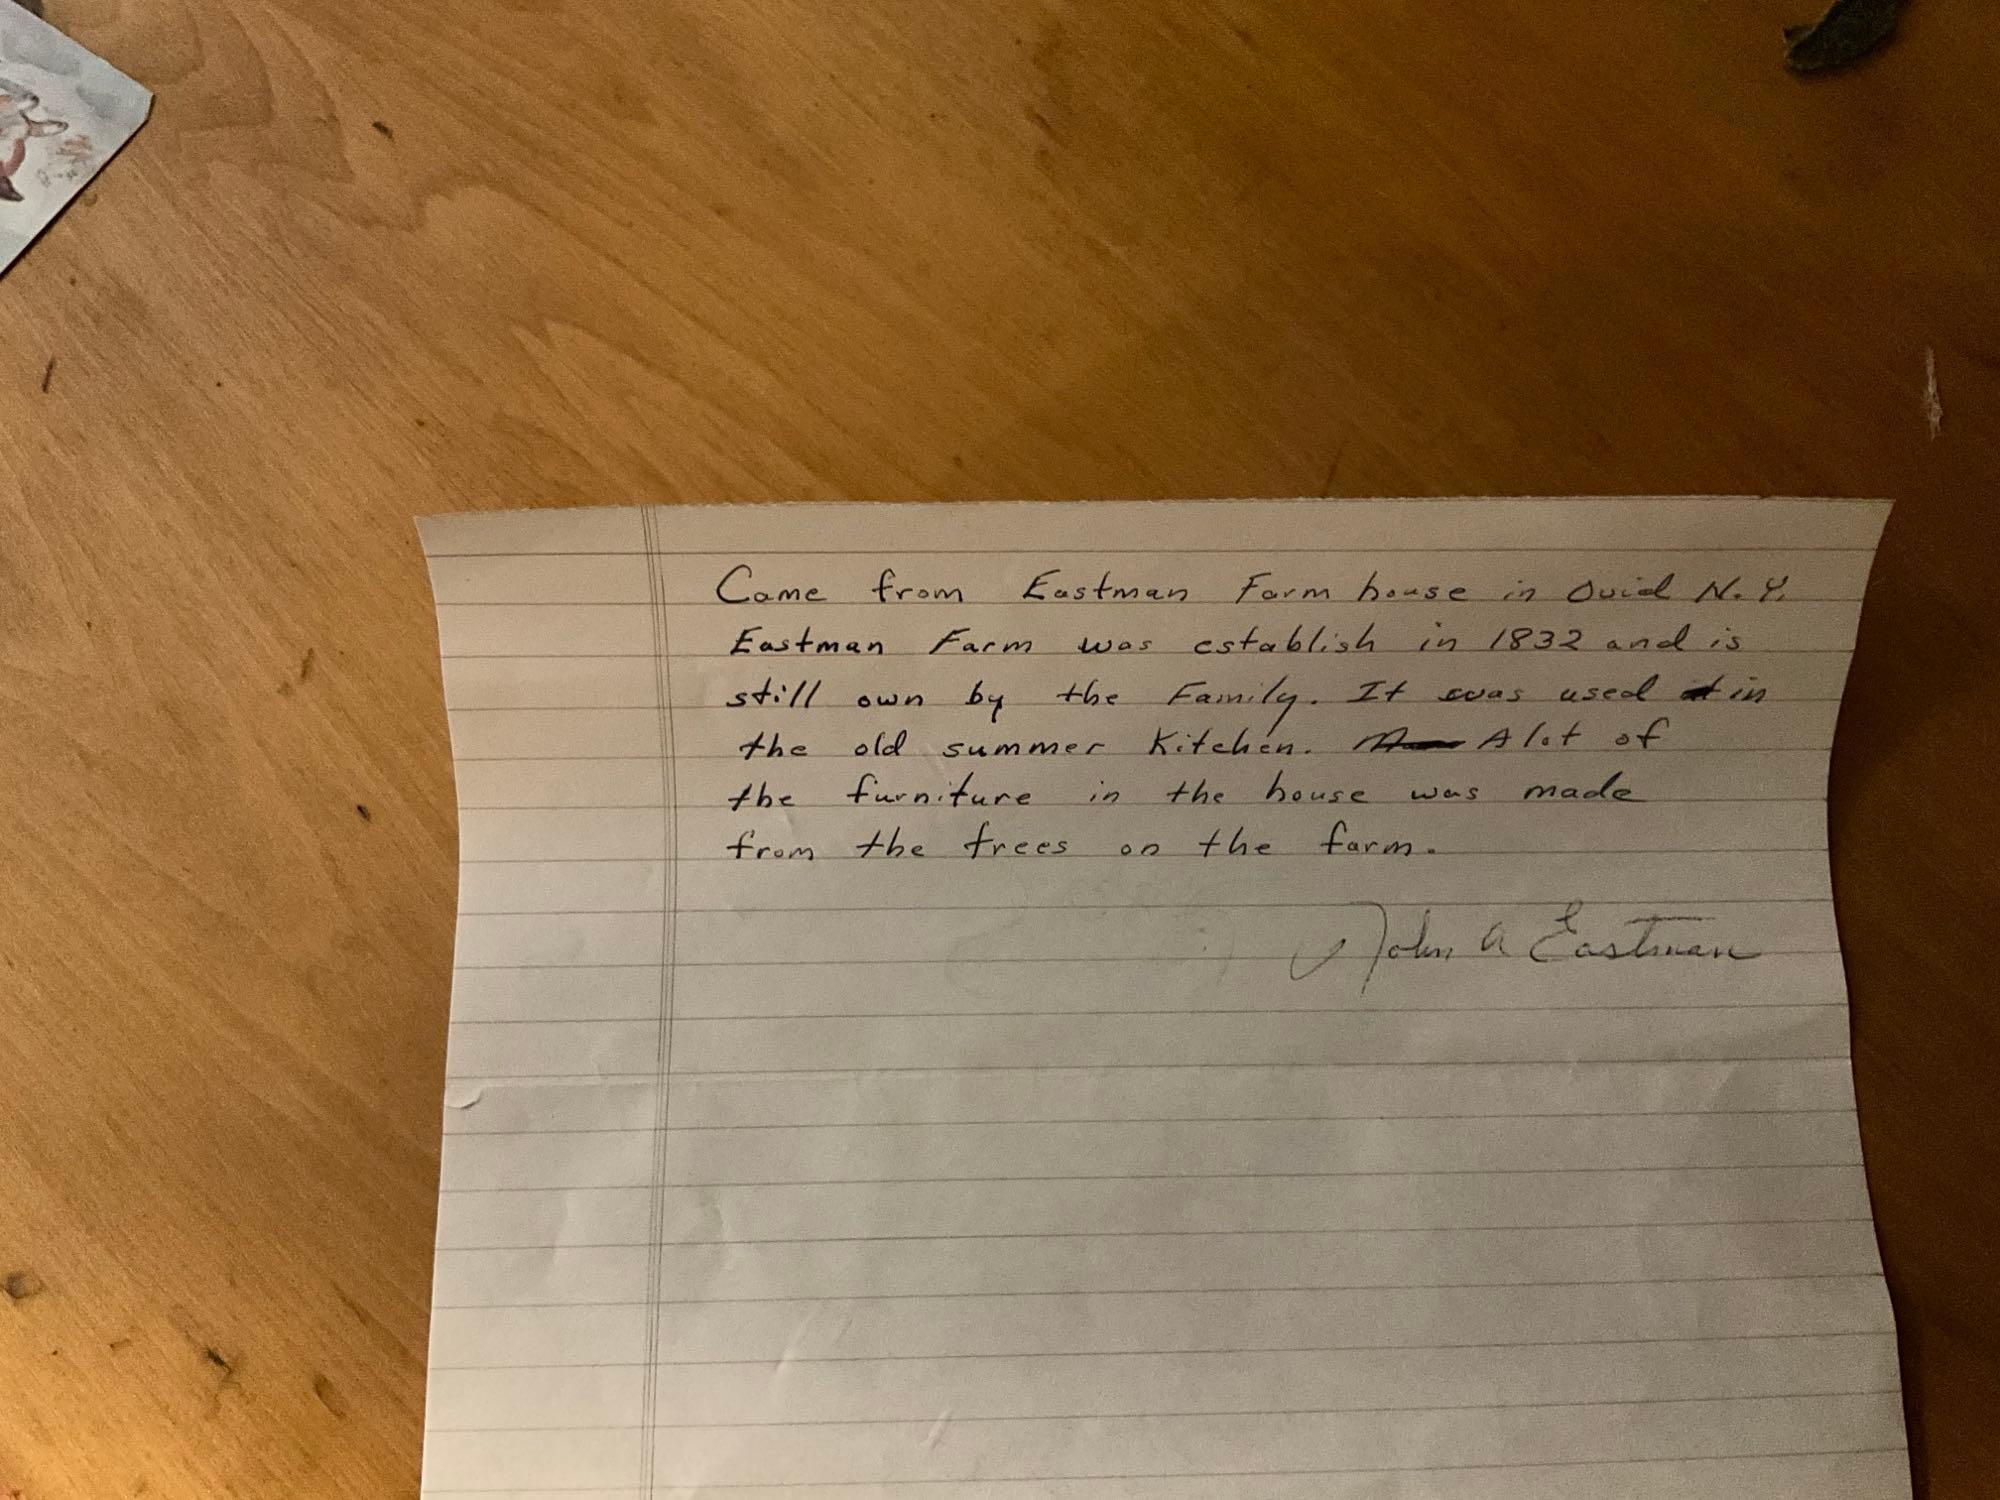 Came from Eastman Farm house in Ovid N.Y.
Eastman Farm was establish in 1832 and is
still own by the Family. It was used in
the old summer Kitchen. A lot of
the furniture in the house was made
from the trees on the farm.
John A Eastman